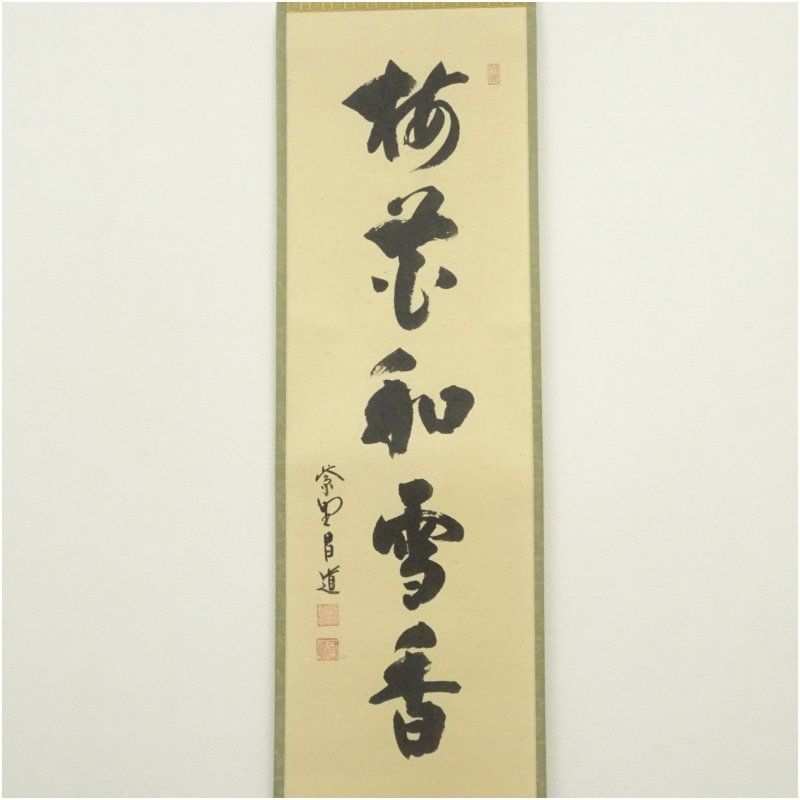 梅花和雪香
紫野昌道